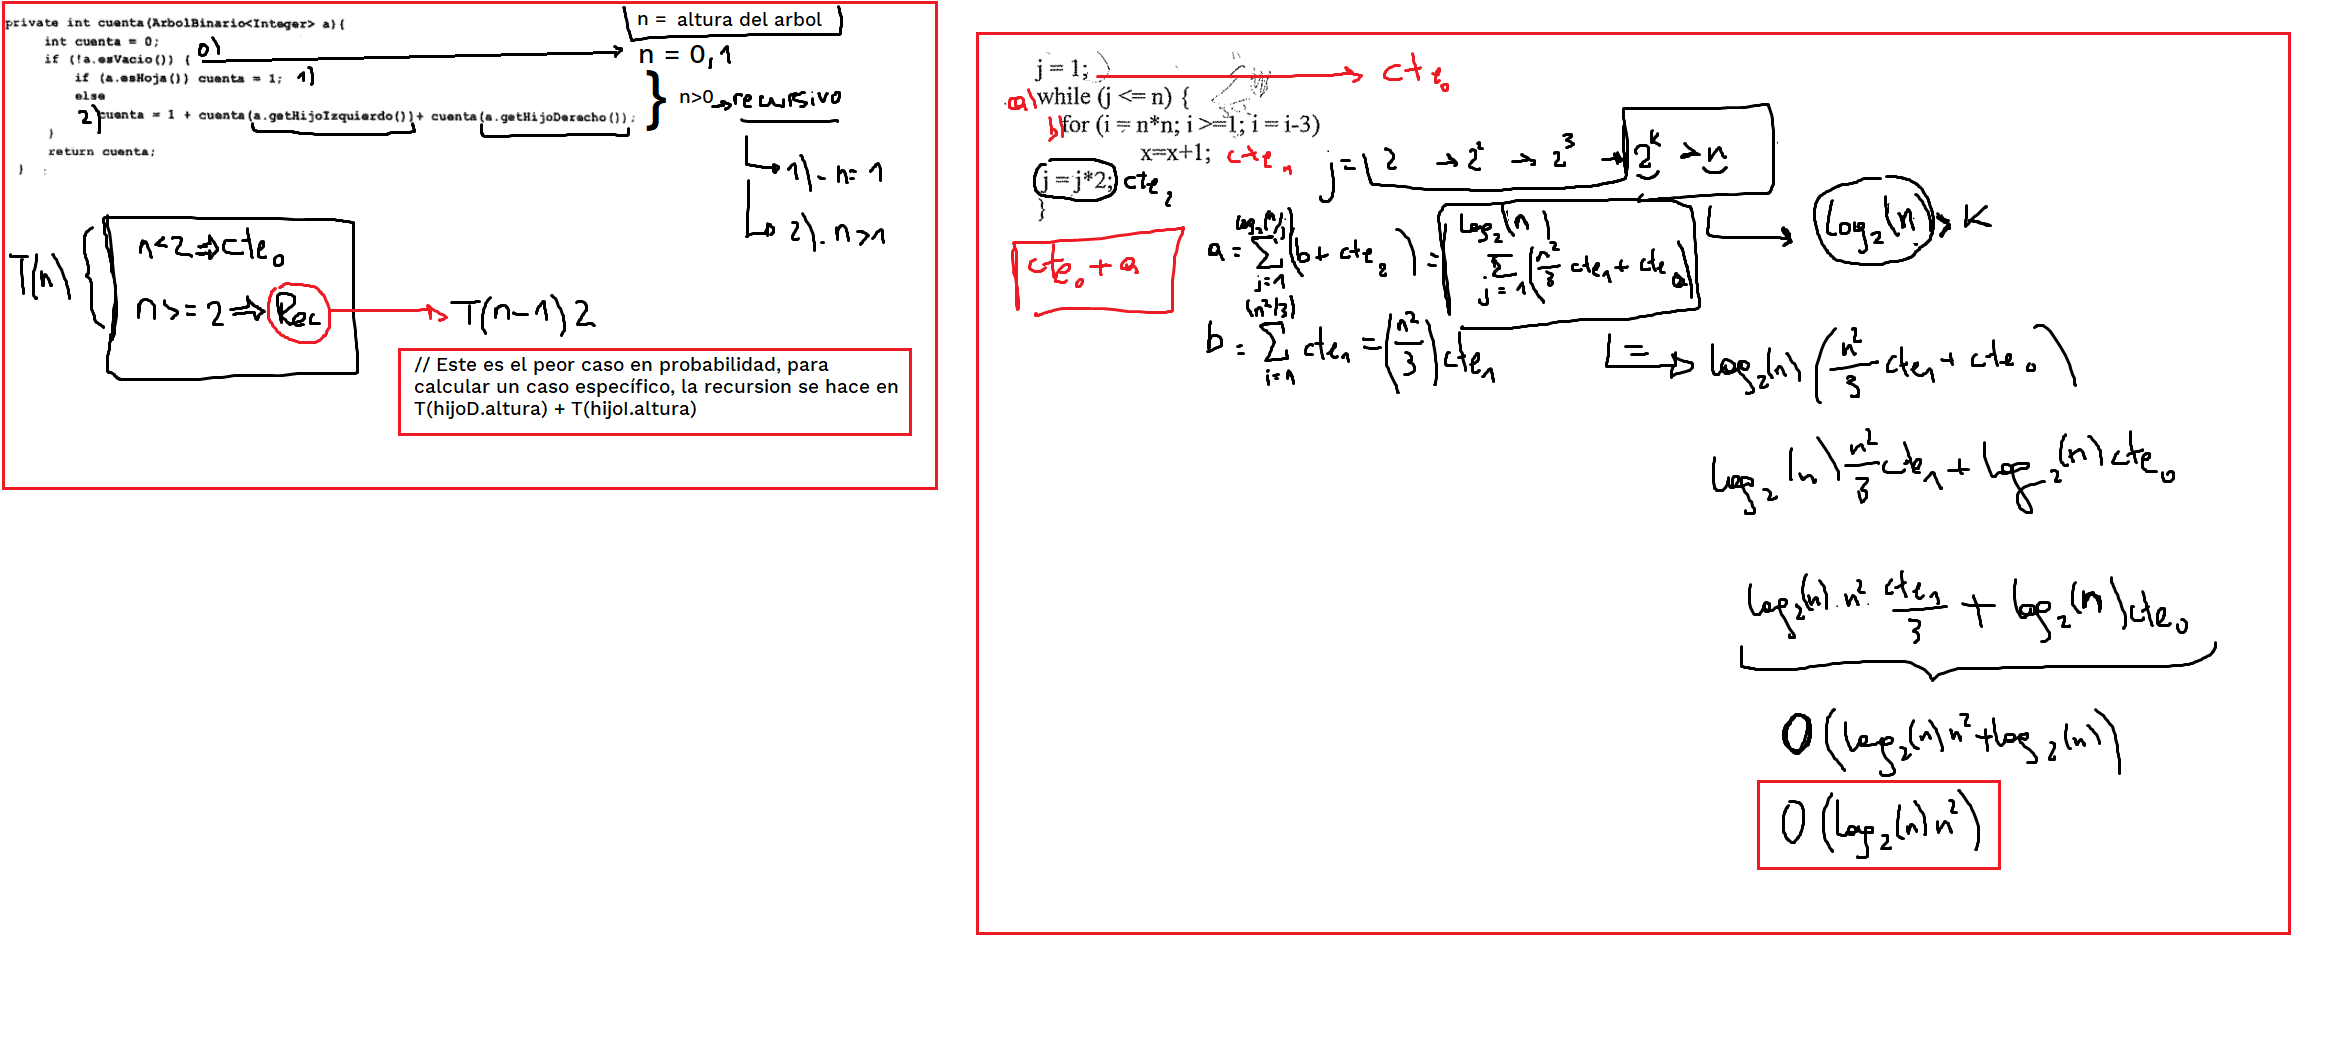 private int cuenta(ArbolBinario<Integer> a){
int cuenta = 0;
if (!a.esVacio()) { 0)
if (a.esHoja()) cuenta = 1; 1)
else
2) cuenta = 1 + cuenta(a.getHijoIzquierdo())+ cuenta(a.getHijoDerecho());
}
return cuenta;
}
n = altura del arbol
n = 0,1
} n>0 → recursivo
1) - n = 1
2). n>1
T(n) {
n<2 ⇒ cte₀
n>=2 ⇒ Rec → T(n-1)2
// Este es el peor caso en probabilidad, para
calcular un caso específico, la recursion se hace en
T(hijoD.altura) + T(hijoI.altura)
j = 1; → cte₀
a) while (j <= n) {
b) for (i = n*n; i >=1; i = i-3)
x=x+1; cte₁
j = j*2; cte₂
}
j = 2 → 2² → 2³ → 2^k > n
log₂(n) > K
cte₀ + a
a = log₂(n) Σ j=1 (b + cte₂) = log₂(n) Σ j=1 (n²/3 cte₁ + cte₀)
b = (n²/3) Σ i=1 cte₁ = (n²/3) cte₁
= log₂(n) (n²/3 cte₁ + cte₀)
log₂(n) n²/3 cte₁ + log₂(n) cte₀
log₂(n) · n² · cte₁/3 + log₂(n) cte₀
O(log₂(n) n² + log₂(n))
O(log₂(n) n²)